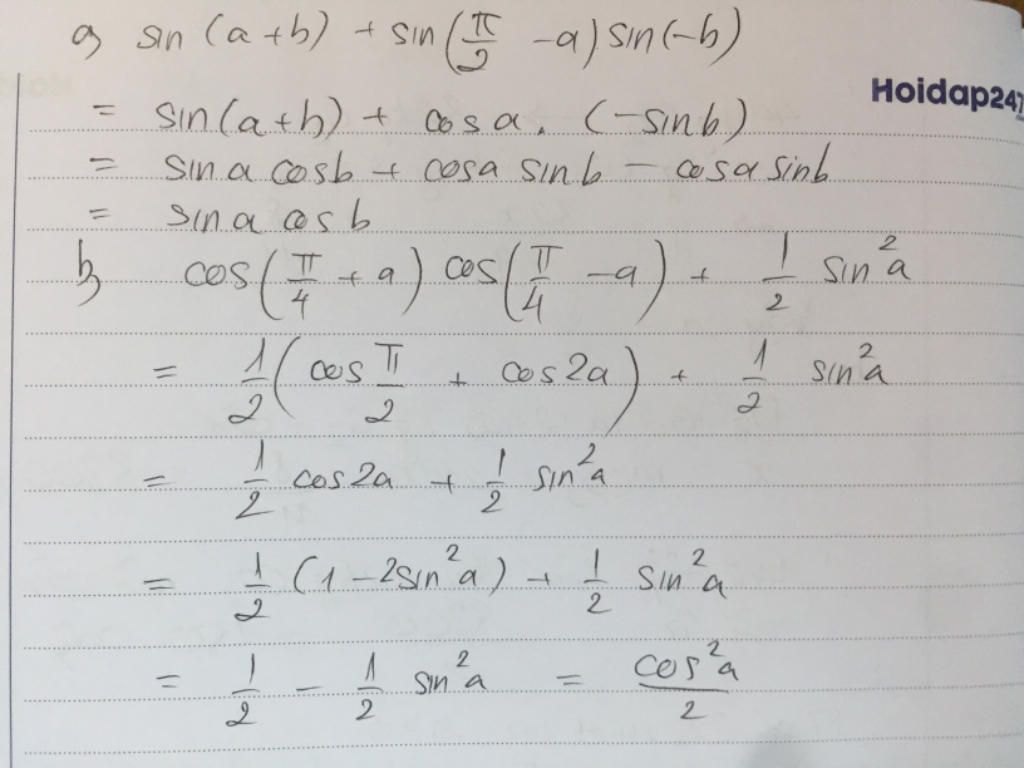 a) sin (a+b) + sin(π/2 - a) sin(-b)
Hoidap247
= sin(a+b) + cos a. (-sinb)
= sin a cosb + cosa sin b - cosa sinb
= sin a cos b
b) cos(π/4 + a) cos(π/4 - a) + 1/2 sin²a
= 1/2 (cos π/2 + cos2a) + 1/2 sin²a
= 1/2 cos2a + 1/2 sin²a
= 1/2 (1-2sin²a) + 1/2 sin²a
= 1/2 - 1/2 sin²a = cos²a/2